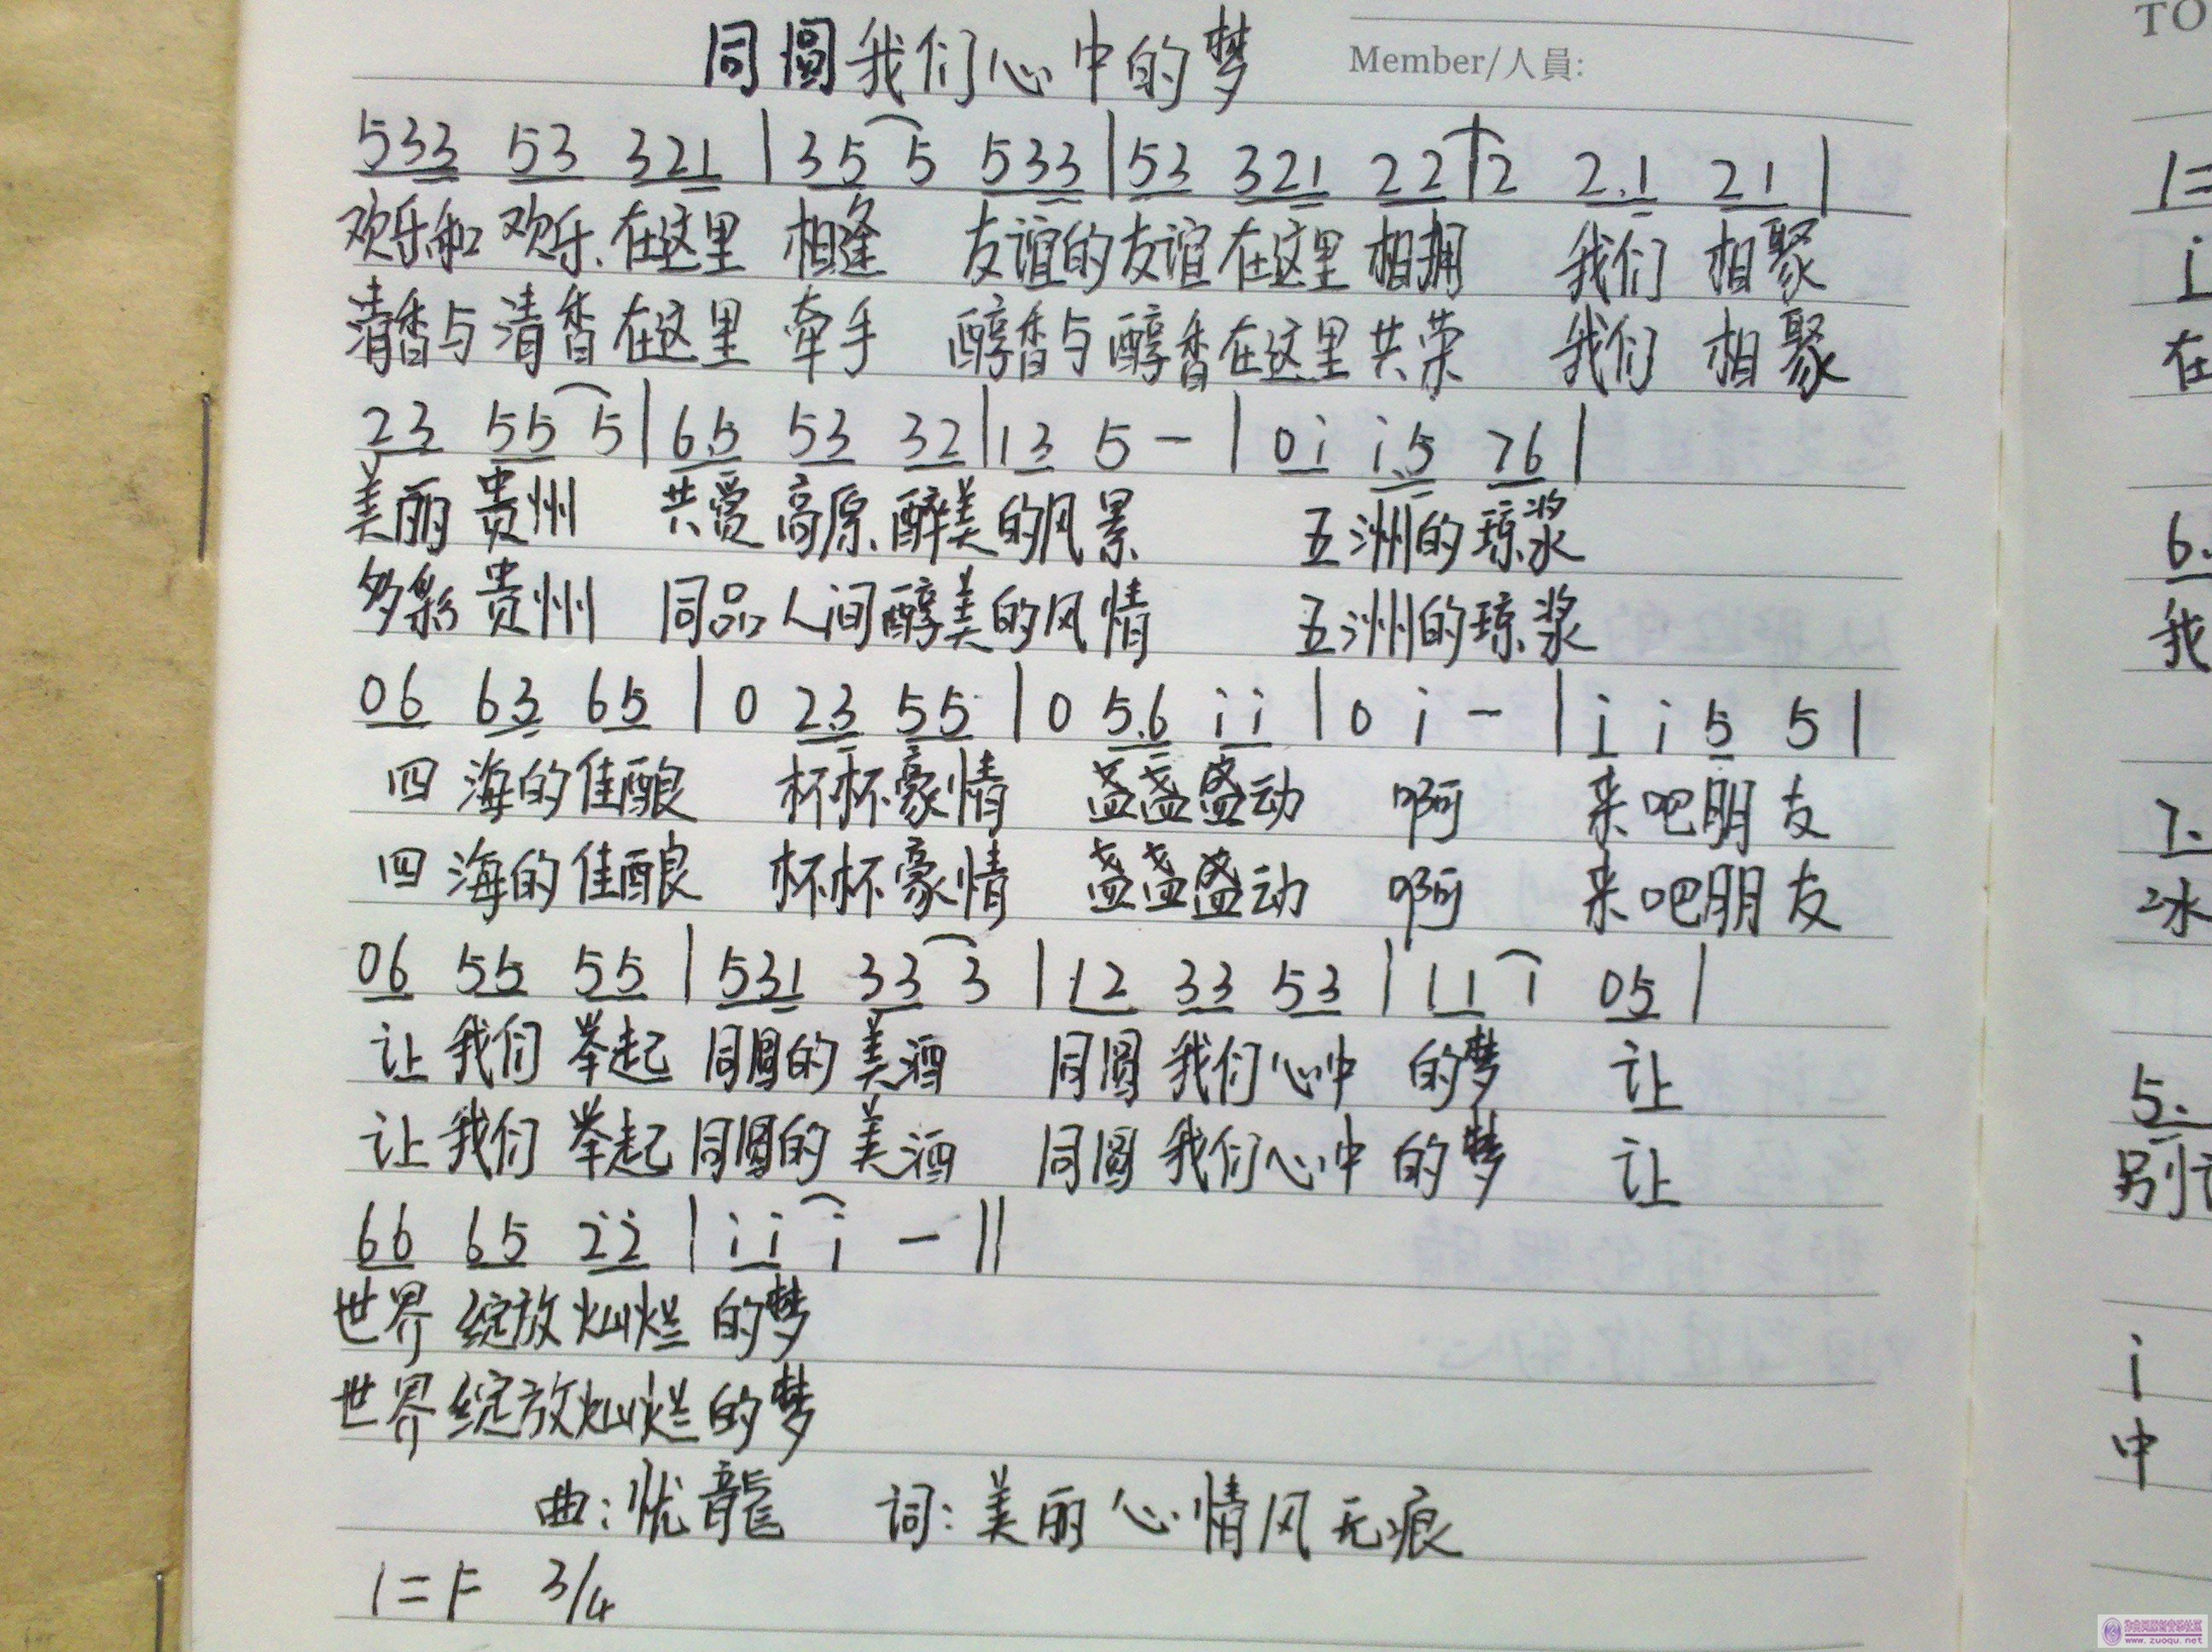 同圆我们心中的梦
Member/人員:
533 53 321 | 35 5 533 | 53 321 22 | 2 2.1 21 |
欢乐和欢乐在这里 相逢 友谊的友谊在这里相拥 我们 相聚
清香与清香在这里 牵手 醇香与醇香在这里共荣 我们 相聚
23 55 5 | 6.5 53 32 | 13 5 - | 0i i.5 76 |
美丽贵州 共爱高原醉美的风景 五洲的琼浆
多彩贵州 同品人间醇美的风情 五洲的琼浆
06 63 65 | 0 2.3 55 | 0 5.6 ii | 0 i - | i i 5 5 |
四海的佳酿 杯杯豪情 盏盏盛动 啊 来吧朋友
四海的佳酿 杯杯豪情 盏盏盛动 啊 来吧朋友
06 55 55 | 531 33 3 | 12 33 53 | 11 1 05 |
让我们举起同圆的美酒 同圆我们心中的梦 让
让我们举起同圆的美酒 同圆我们心中的梦 让
66 65 2̇2̇ | ii i - ||
世界绽放灿烂的梦
世界绽放灿烂的梦
曲:忧龍 词:美丽心情风无痕
1=F 3/4
TO
1=
i
在
6.
我
7.
冰
5.
别
i
中
www.zuoqu.net